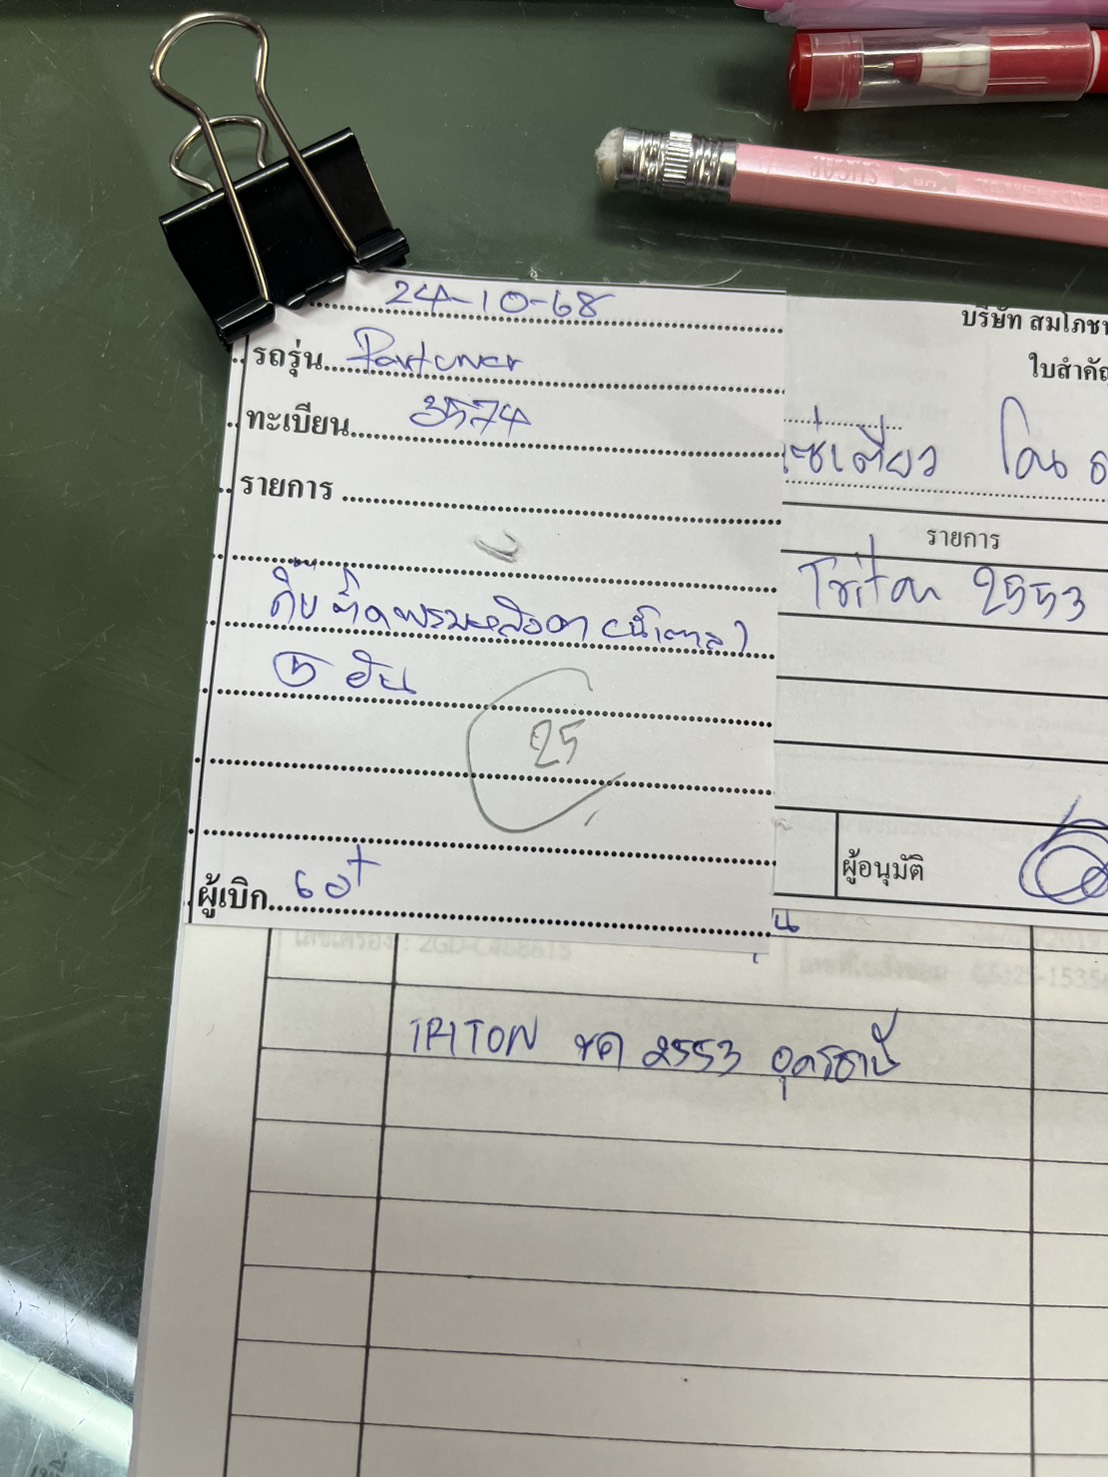 24-10-68
รถรุ่น Fortuner
ทะเบียน 3574
รายการ
กิ๊บ ติดพรมหลังคา (น้ำตาล)
5 อัน
25
ผู้เบิก
บริษัท สมโภชน
ใบสำคัญ
โดน
รายการ
Triton 2553
ผู้อนุมัติ
เลขเครื่อง : 2GD-C488615
TRITON ขค 2553 อุดรธานี